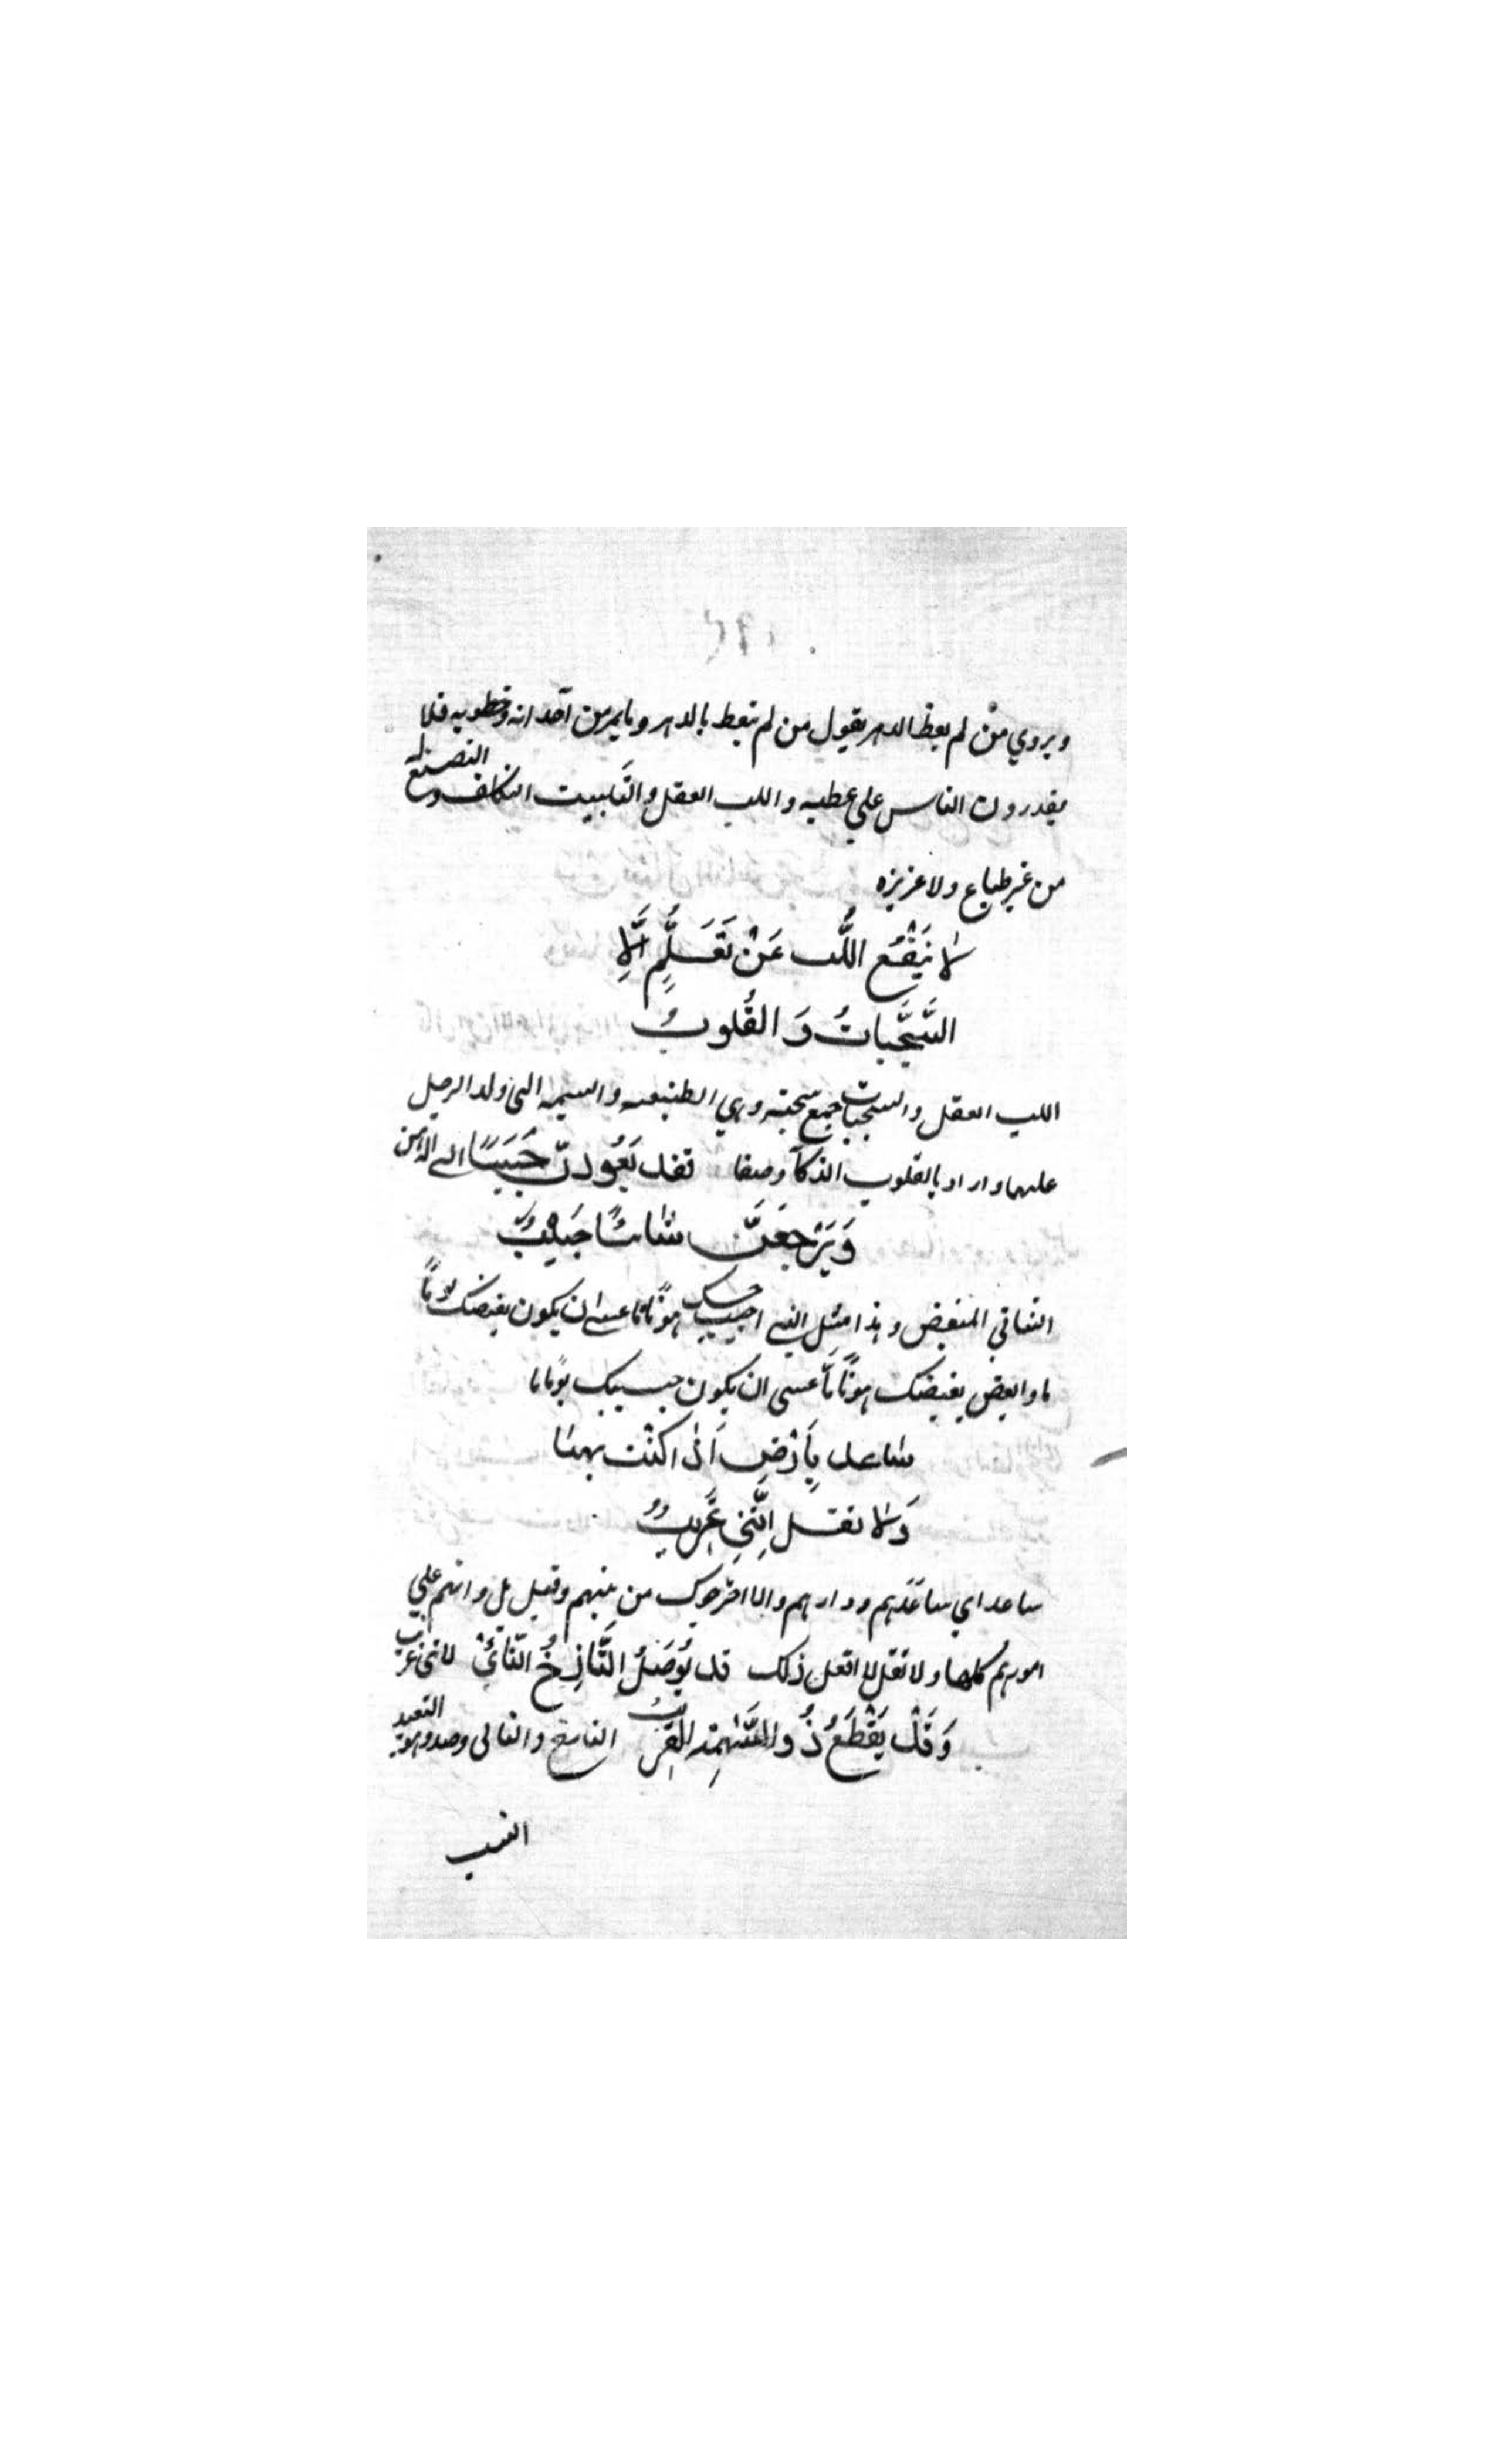 ويروي من لم يعظ الدهر يقول من لم يتعظ بالدهر وما يمر من احداثه وخطوبه فلا
يقدرون الناس علي عظته واللب العقل والتلبيب التكلف و التصنع
من غير طباع ولا غريزه
لا يَنْفَعُ اللُّبُّ عَنْ تَعَلُّمٍ اِلَّا
السَّجِيَّاتُ وَ القُلُوبُ
اللب العقل والسجيات جمع سجيه وهي الطبيعه والشيمه التي ولد الرجل
عليها واراد بالقلوب الذكآ وصفا
فقد يَعُودَنْ حَبِيبًا
وَيَرْجِعَنَّ شانئًا حَبِيبُ
الشاني المبغض وهذا مثل احبب حبيبك هونًا ما عسى ان يكون بغيضك يومًا
ما وابغض بغيضك هونًا ما عسى ان يكون حبيبك يومًا ما
ساعد بِأَرْضٍ اذا كنْتَ بها
وَلا تقل اِنَّنِي غَرِيبُ
ساعد اي ساعدهم ودارهم والا اخرجوك من بينهم وقيل بل واتهم علي
امورهم كلها ولا تقل لا افعل ذلك لاني غريب
قد يُوصَلُ النَّازِحُ النَّائِي
وَقَدْ يُقْطَعُ ذُو السُّهْمَةِ القَرِيبُ
النازح والنائي وهو البعيد